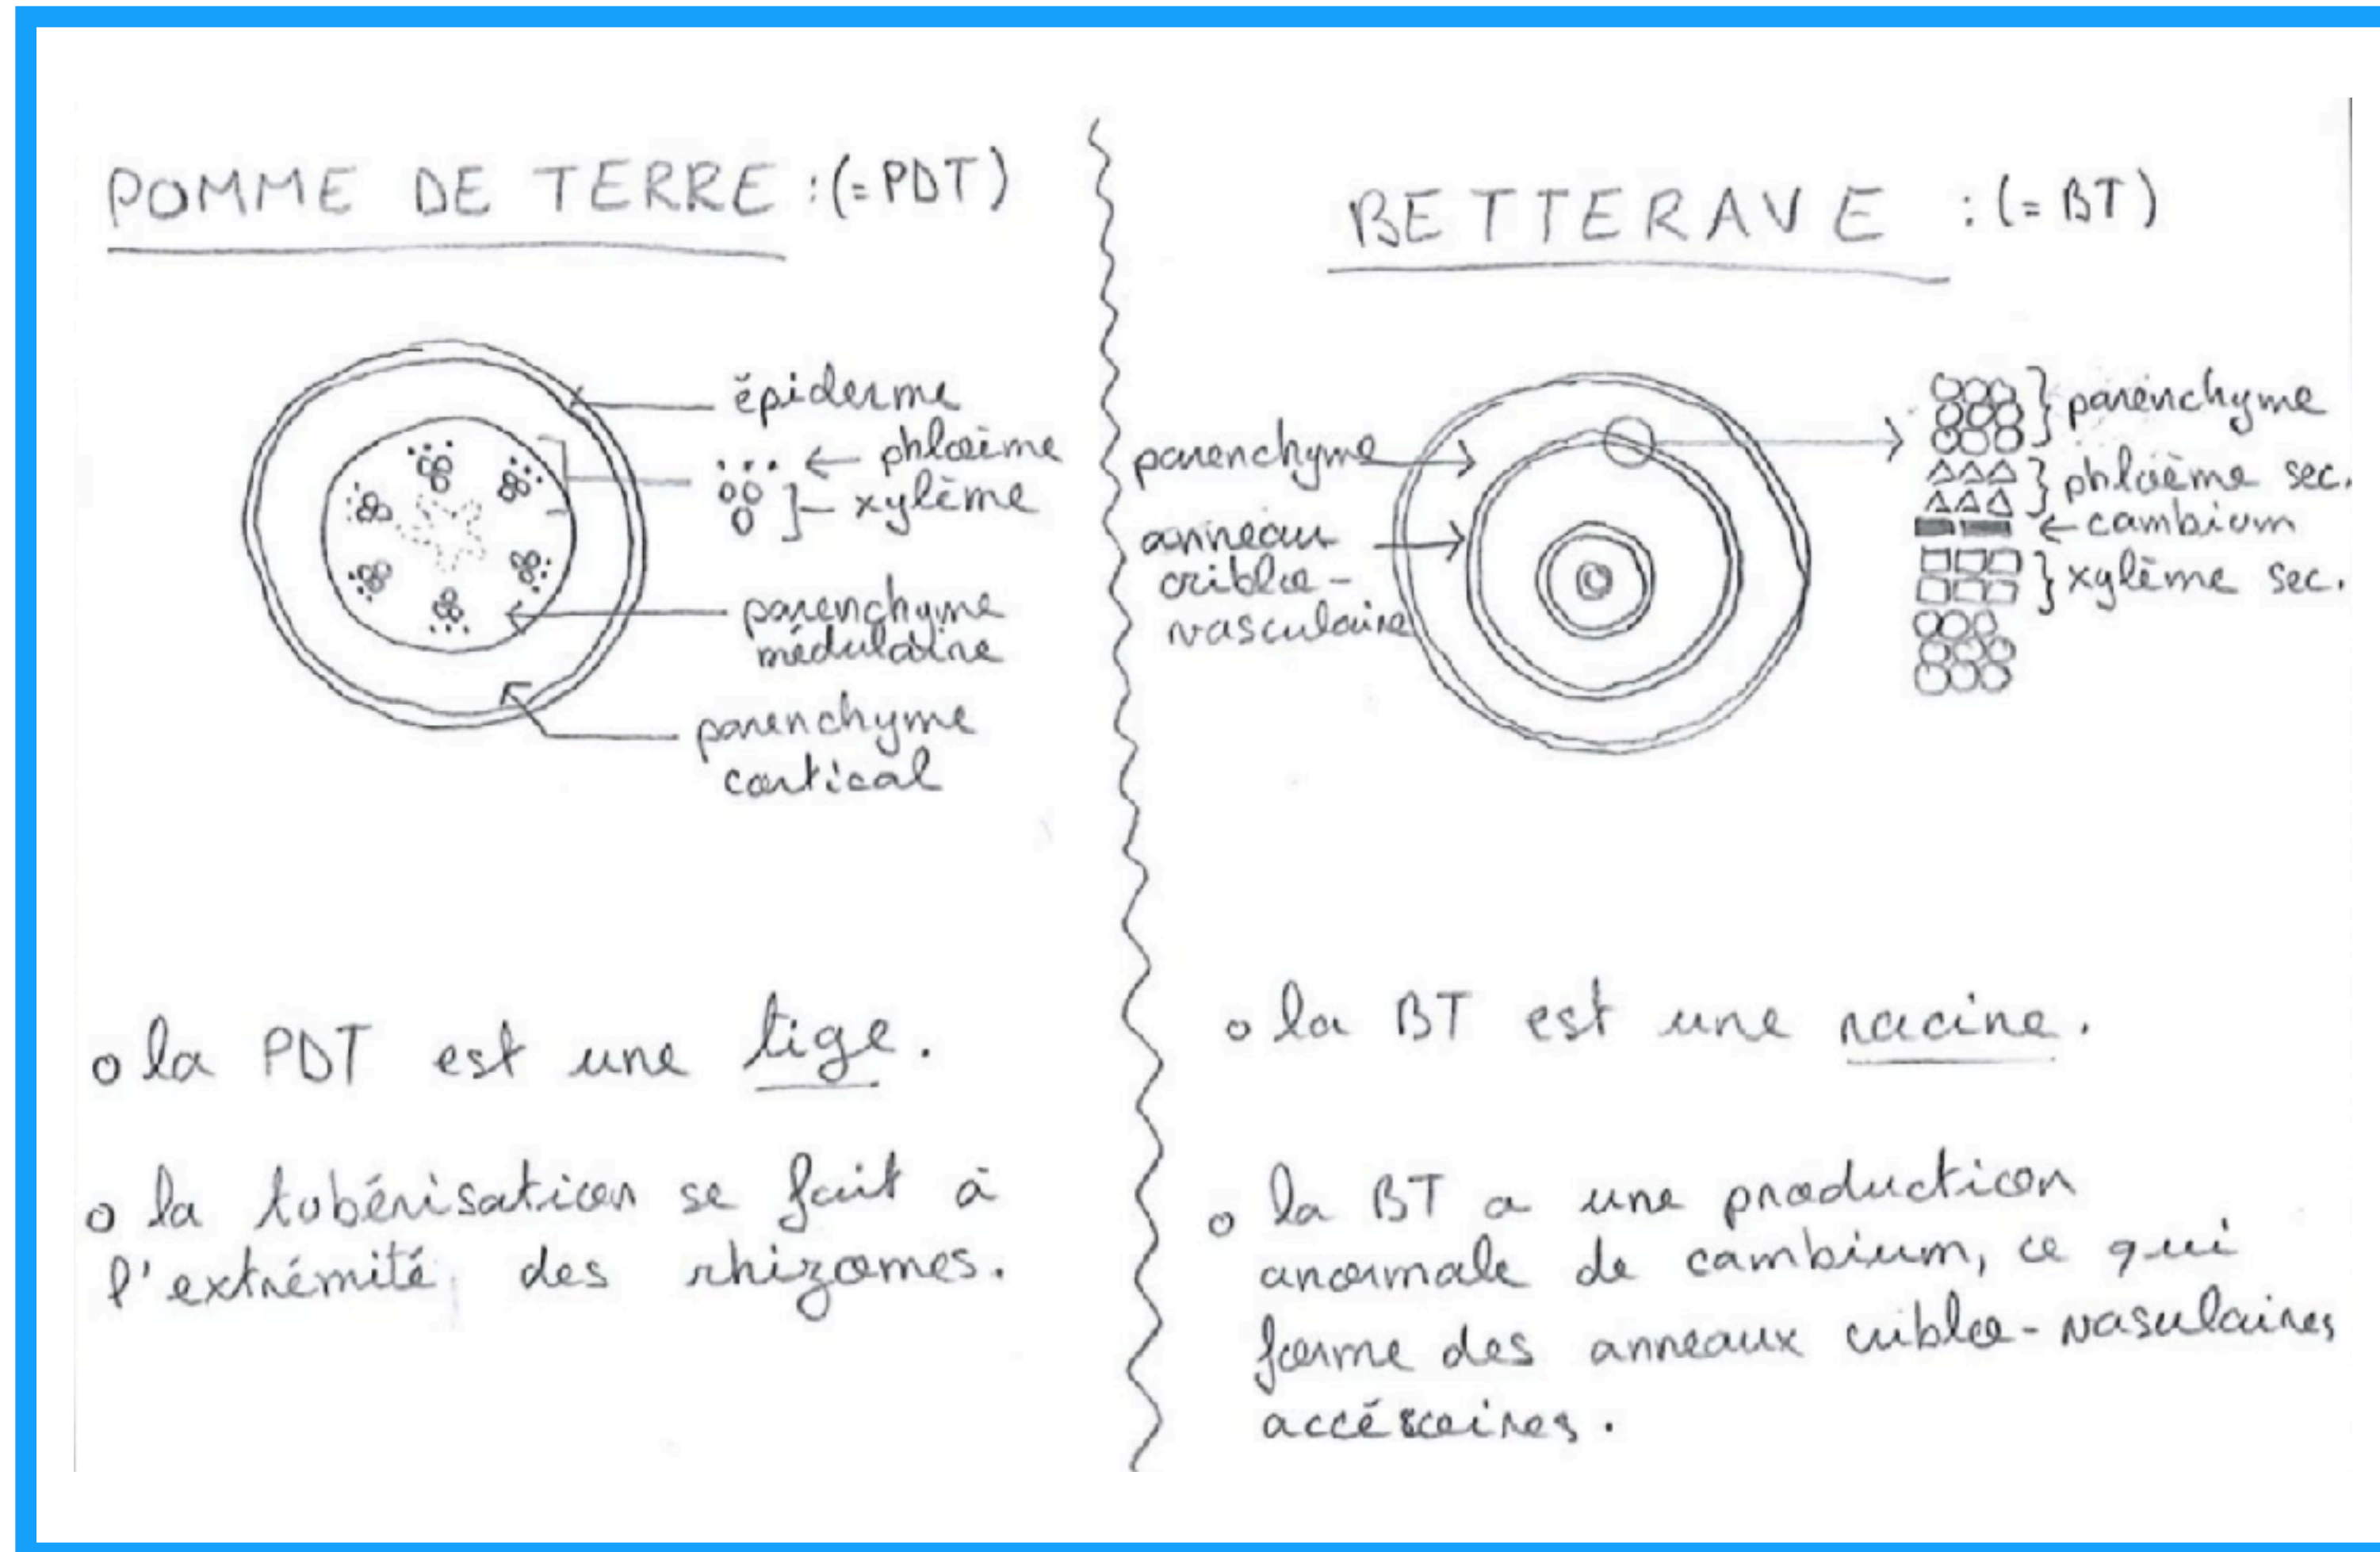 POMME DE TERRE : (= PDT)
épiderme
phloème
xylème
parenchyme
médulaire
parenchyme
cortical
o la PDT est une tige.
o la tubérisation se fait à
l'extrémité des rhizomes.
BETTERAVE : (= BT)
parenchyme
anneau
criblo-
vasculaire
parenchyme
phloème sec.
cambium
xylème sec.
o la BT est une racine.
o la BT a une production
anormale de cambium, ce qui
forme des anneaux criblo-vasulaires
accéssoires.